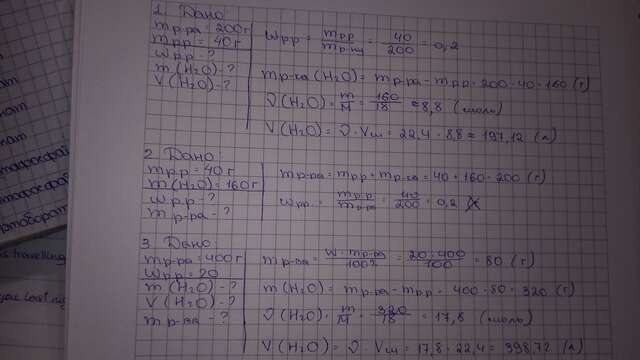 1. Дано:
mр-ра = 200г
mрр = 40г
wрр = ?
m(H₂O) - ?
V(H₂O) - ?
wрр = mрр/mр-ра = 40/200 = 0,2
mр-ля(H₂O) = mр-ра - mрр = 200 - 40 = 160 (г)
ν(H₂O) = m/M = 160/18 = 8,8 (моль)
V(H₂O) = ν · Vm = 22,4 · 8,8 = 197,12 (л)
2. Дано:
mрр = 40г
m(H₂O) = 160г
wрр - ?
mр-ра - ?
mр-ра = mрр + mр-ля = 40 + 160 = 200 (г)
wрр = mрр/mр-ра = 40/200 = 0,2
3. Дано:
mр-ра = 400г
wрр = 20
m(H₂O) - ?
V(H₂O) - ?
mр-ва - ?
mр-ва = w · mр-ра/100% = 20 · 400/100 = 80 (г)
m(H₂O) = mр-ра - mрр = 400 - 80 = 320 (г)
ν(H₂O) = m/M = 320/18 = 17,8 (моль)
V(H₂O) = ν · Vm = 17,8 · 22,4 = 398,72 (л)
travelling